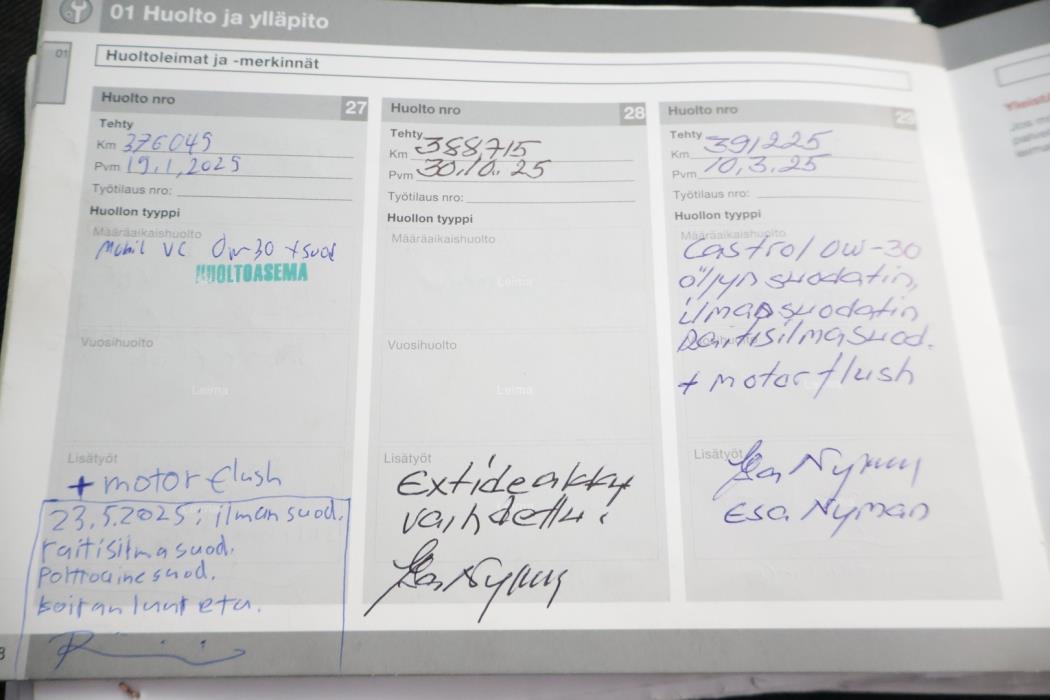 01 Huolto ja ylläpito
01
Huoltoleimat ja -merkinnät
Huolto nro 27
Tehty
Km 376049
Pvm 19.1.2025
Työtilaus nro:
Huollon tyyppi
Määräaikaishuolto
Mobil VC 0w-30 +suod
HUOLTOASEMA
Vuosihuolto
Leima
Lisätyöt
+ motor flush
23.5.2025: ilman suod.
raitisilmasuod.
Polttoainesuod.
koiranluut etu.
Huolto nro 28
Tehty
Km 388,715
Pvm 30.10. 25
Työtilaus nro:
Huollon tyyppi
Määräaikaishuolto
Leima
Vuosihuolto
Leima
Lisätyöt
Extideakku
vaihdettu.
Huolto nro 29
Tehty
Km 391225
Pvm 10.3.25
Työtilaus nro:
Huollon tyyppi
Määräaikaishuolto
Castrol 0w-30
öljyn suodatin,
ilmansuodatin
Raitisilmasuod.
+ motorflush
Lisätyöt
Esa Nyman
Esa Nyman